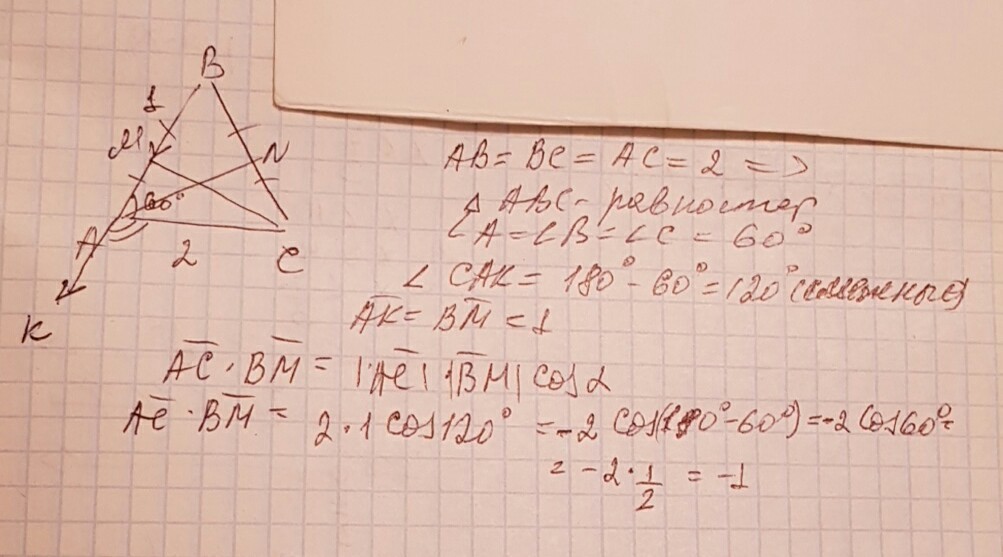 B
1
M
N
60°
A
2
C
K
AB = BC = AC = 2 =>
△ ABC - равностор
∠A = ∠B = ∠C = 60°
∠ CAK = 180° - 60° = 120° (смежные)
A̅K̅ = B̅M̅ = 1
A̅C̅ · B̅M̅ = |A̅C̅| · |B̅M̅| cos α
A̅C̅ · B̅M̅ = 2 · 1 cos 120° = -2 cos(180° - 60°) = -2 cos 60° =
= -2 · 1/2 = -1